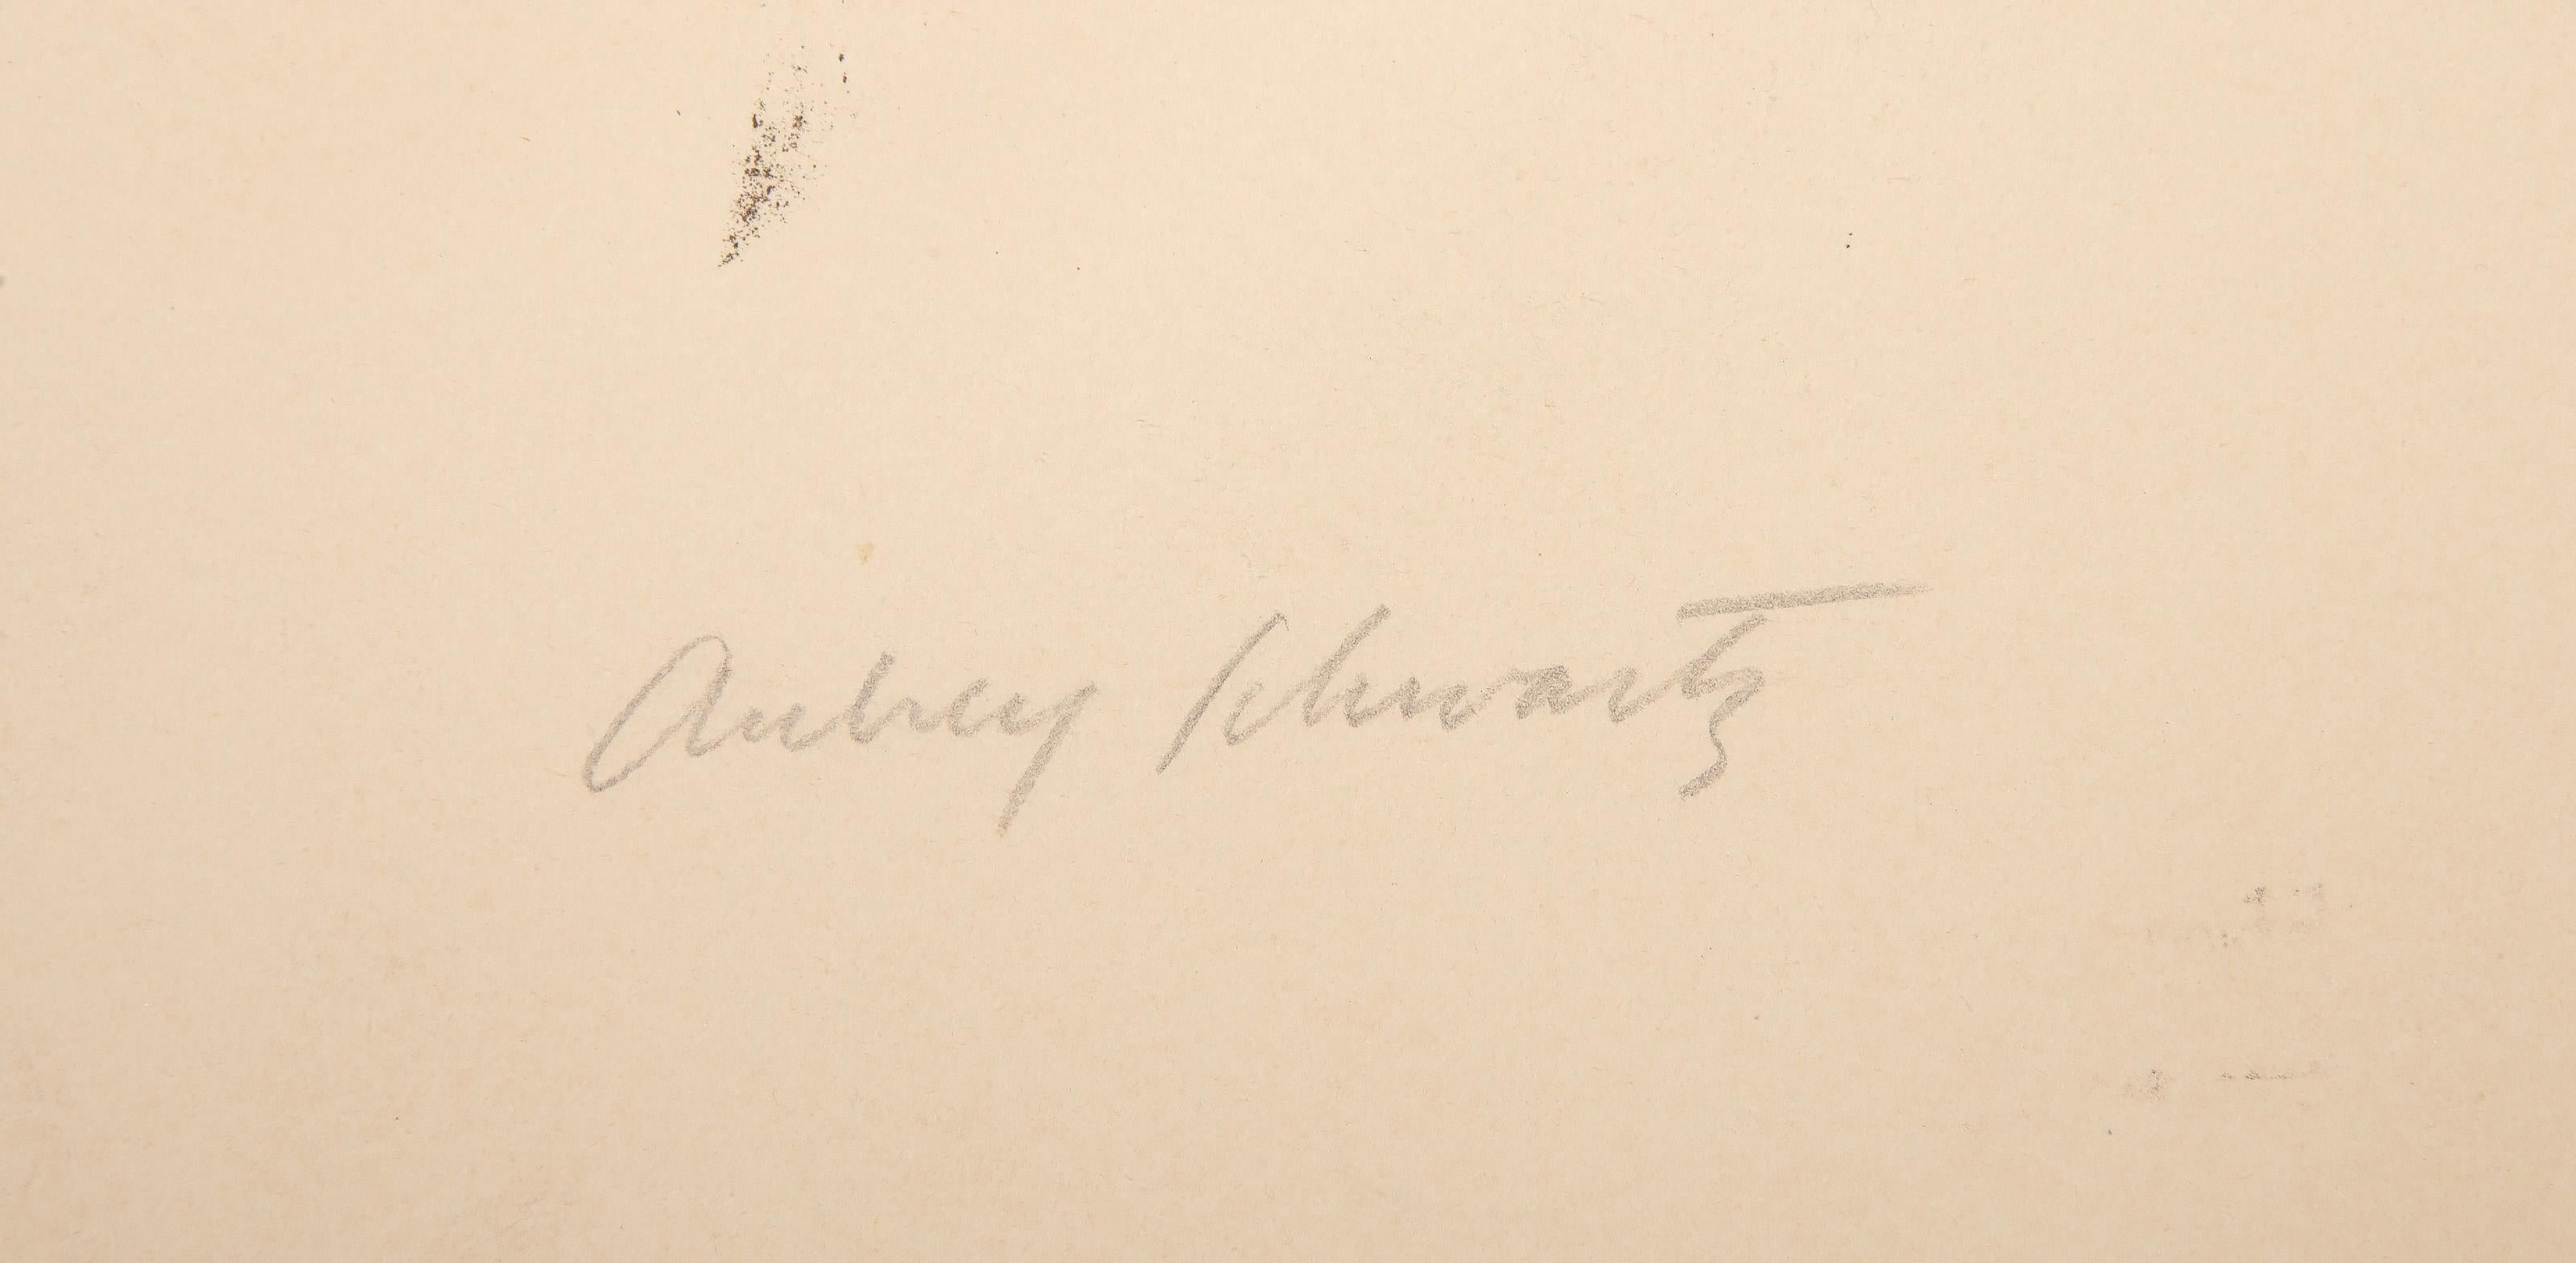 Aubrey Schwartz